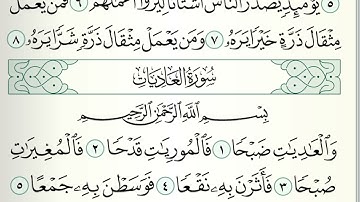 ٥ يَوْمَئِذٍ يَصْدُرُ ٱلنَّاسُ أَشْتَاتًا لِّيُرَوْا۟ أَعْمَٰلَهُمْ ٦ فَمَن يَعْمَلْ
مِثْقَالَ ذَرَّةٍ خَيْرًا يَرَهُۥ ٧ وَمَن يَعْمَلْ مِثْقَالَ ذَرَّةٍ شَرًّا يَرَهُۥ ٨
سُورَةُ العَادِيَاتِ
بِسْمِ ٱللَّهِ ٱلرَّحْمَٰنِ ٱلرَّحِيمِ
وَٱلْعَٰدِيَٰتِ ضَبْحًا ١ فَٱلْمُورِيَٰتِ قَدْحًا ٢ فَٱلْمُغِيرَٰتِ
صُبْحًا ٣ فَأَثَرْنَ بِهِۦ نَقْعًا ٤ فَوَسَطْنَ بِهِۦ جَمْعًا ٥